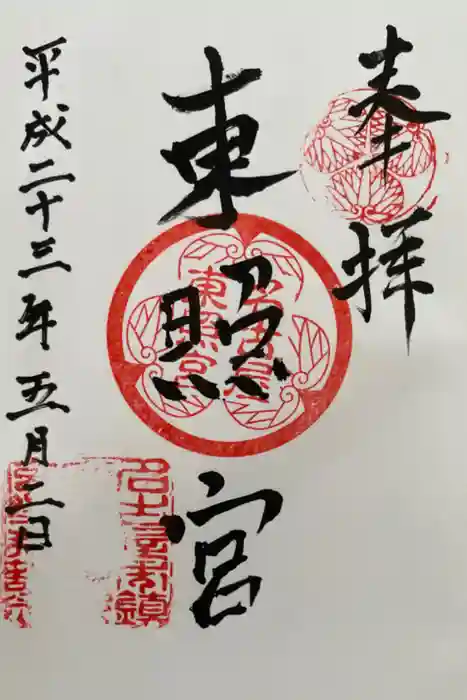 奉拝
東照宮
名古屋
東照宮
平成二十三年五月二日
名古屋
鎮